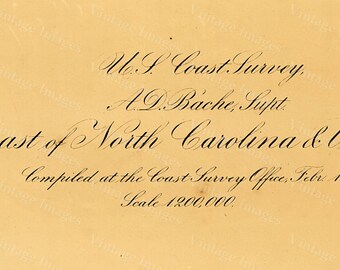 U.S. Coast Survey,
A.D. Bache, Supt.
ast of North Carolina &
Compiled at the Coast Survey Office, Febr.
Scale 1200,000.